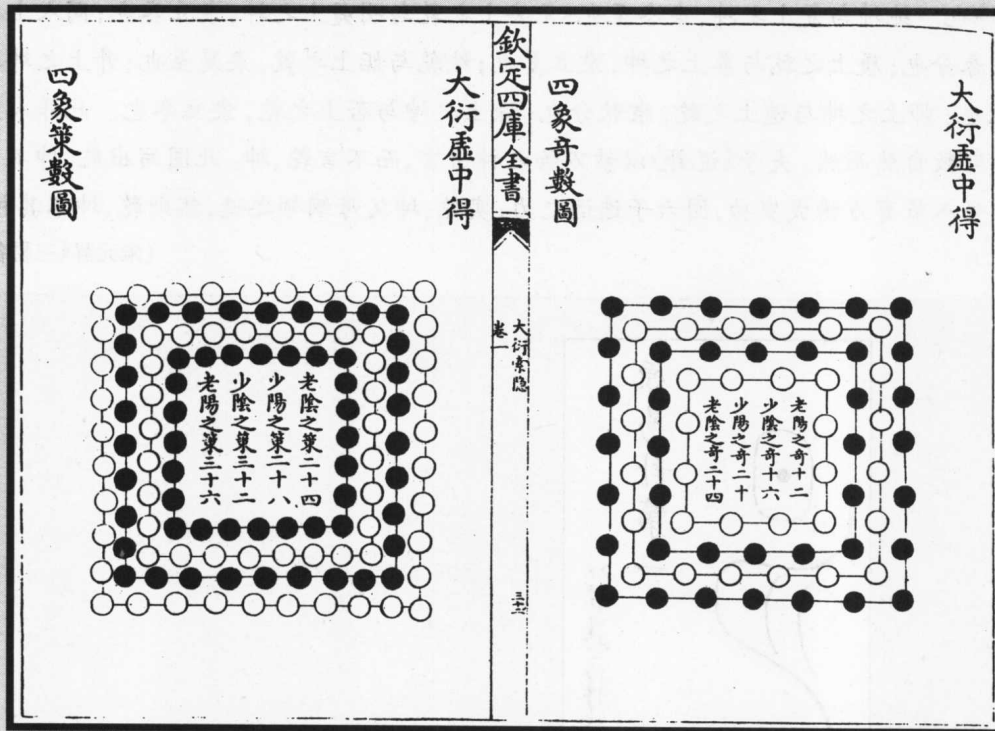 大衍虛中得
四象奇數圖
老陽之奇十二
少陰之奇十六
少陽之奇二十
老陰之奇二十四
欽定四庫全書
大衍索隱
卷
大衍虛中得
四象策數圖
老陰之策二十四
少陽之策二十八
少陰之策三十二
老陽之策三十六